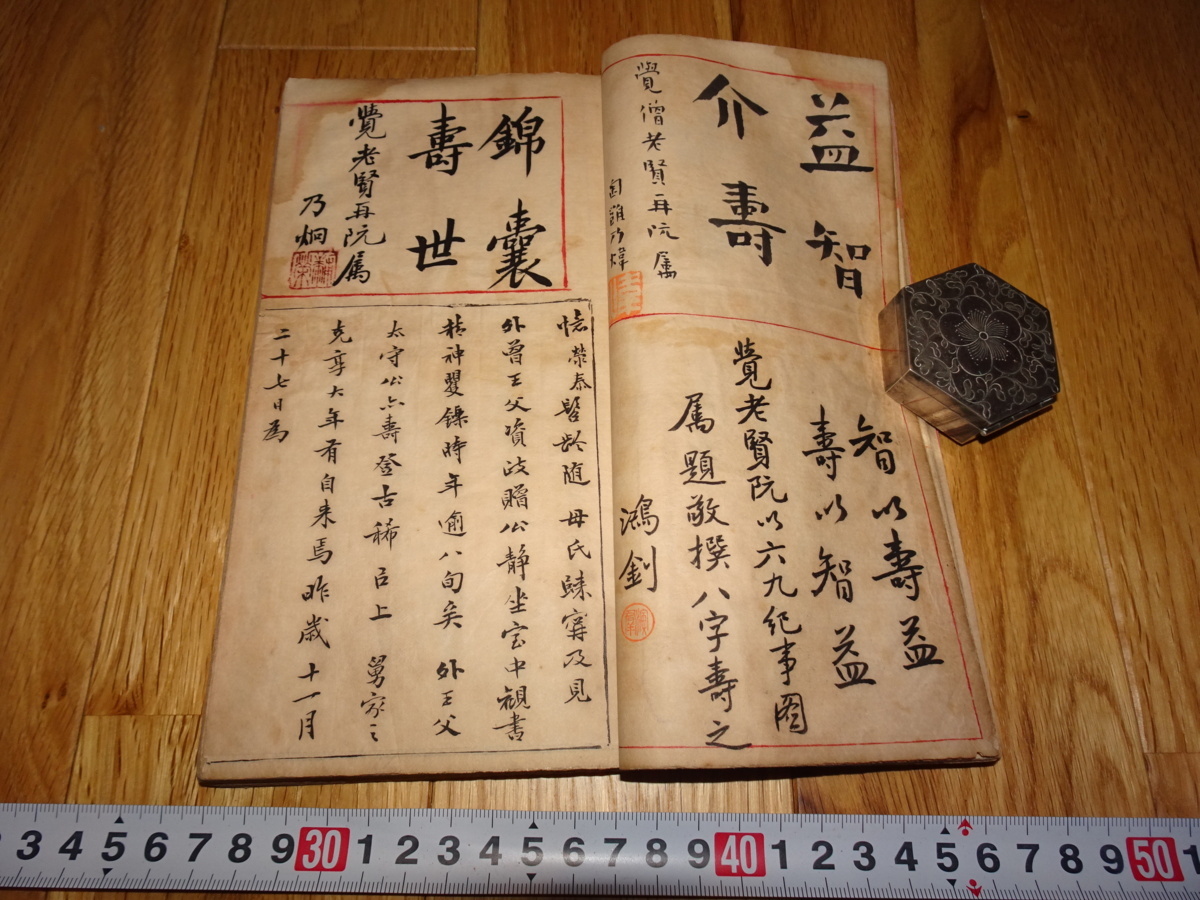 益智
介壽
覺僧老賢再阮屬
智以壽益
壽以智益
覺老賢阮以六九紀事圖
屬題敬撰八字壽之
鴻釗
錦囊
壽世
覺老賢再阮屬
乃炯
憶榮泰髫齡隨 母氏歸寧及見
外曾王父資政贈公靜坐室中觀書
精神矍鑠時年逾八旬矣 外王父
太守公亦壽登古稀 舅家之
克享大年有自来焉昨歲十一月
二十七日為
3 4 5 6 7 8 9 30 1 2 3 4 5 6 7 8 9 40 1 2 3 4 5 6 7 8 9 50 1